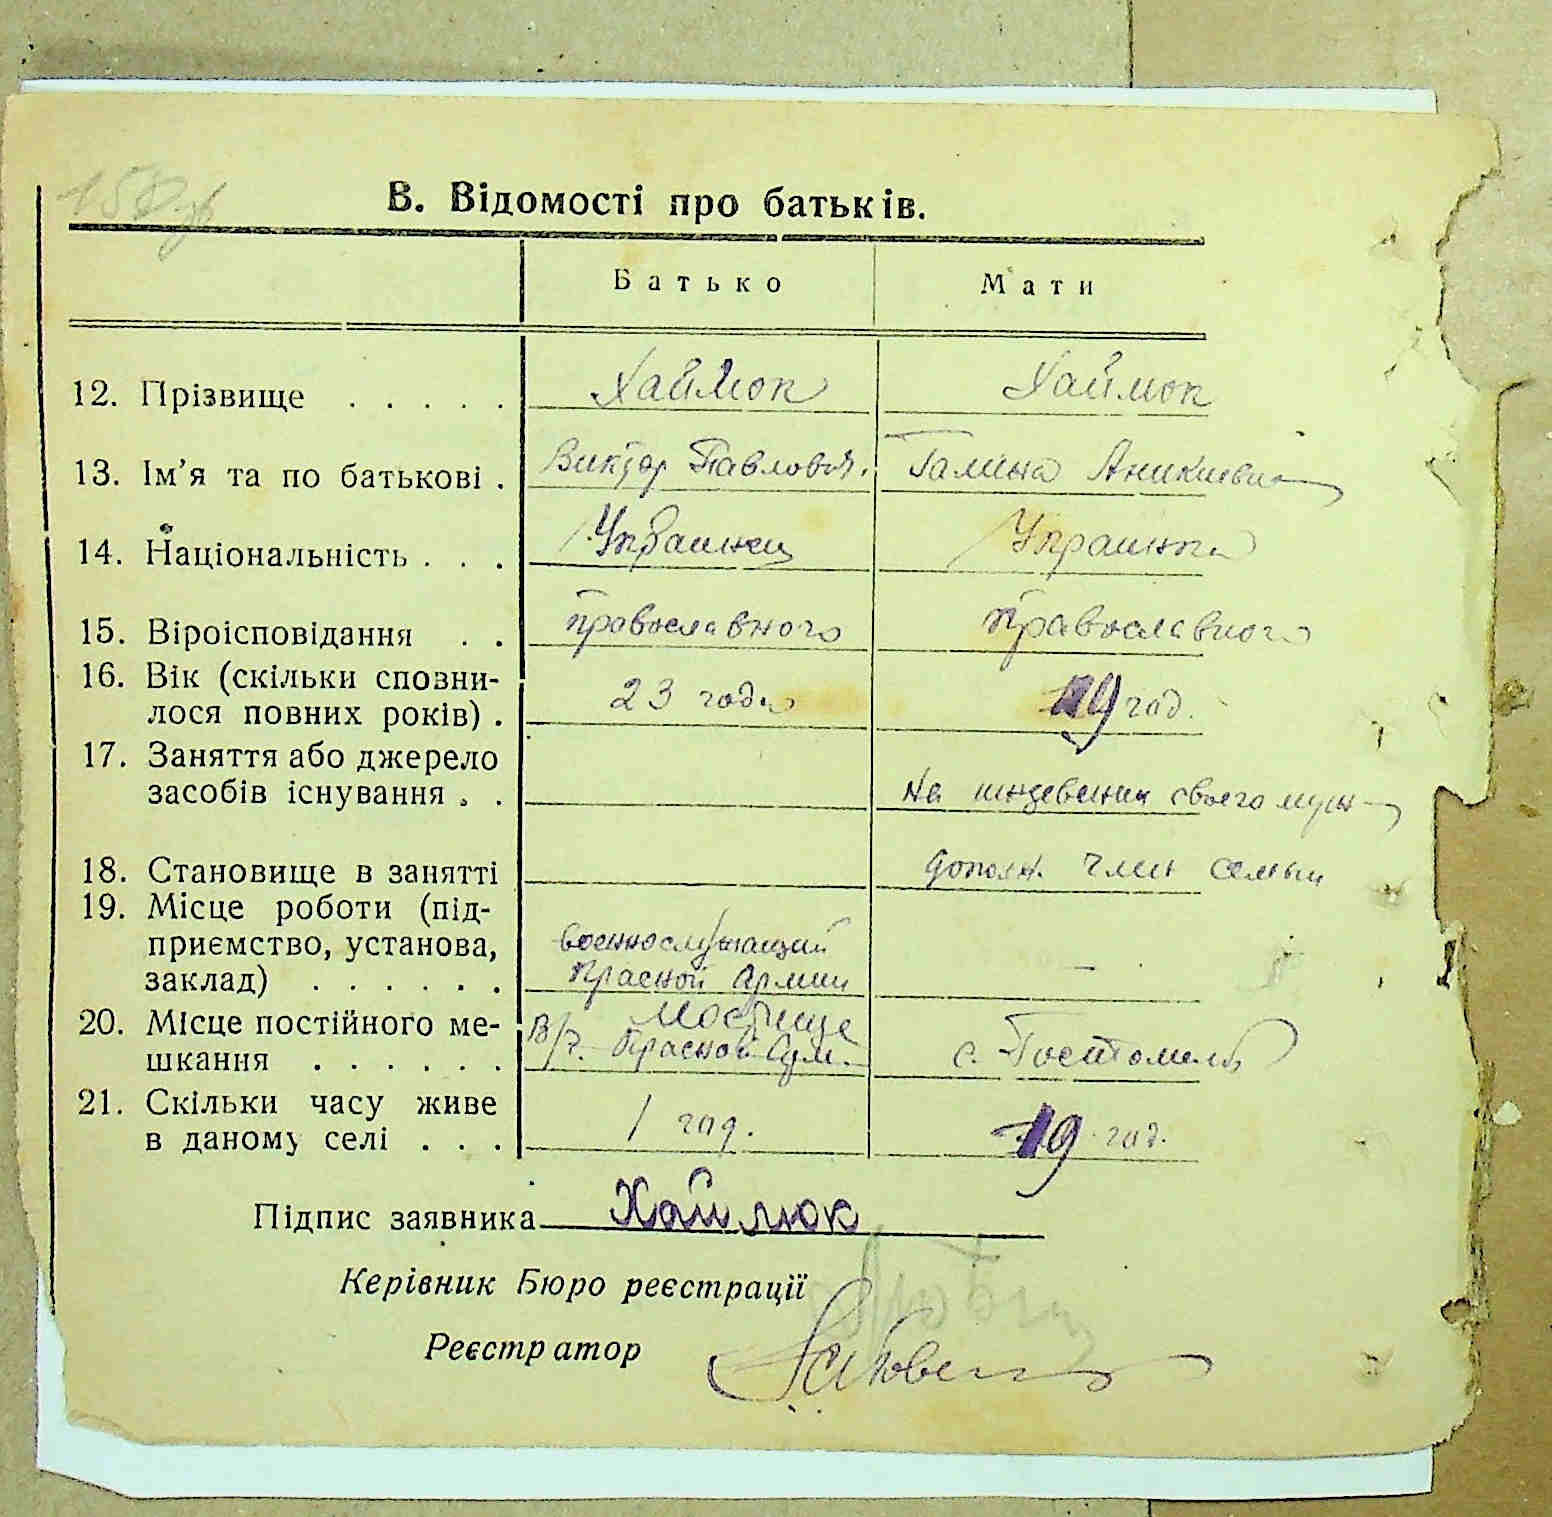 В. Відомості про батьків.
Батько Мати
12. Прізвище . . . . . Хаймюк Хаймюк
13. Ім'я та по батькові . Виктор Павлович. Галина Аникиевна
14. Національність . . . Украинец Украинка
15. Віроісповідання . . православного Православного
16. Вік (скільки сповни-
лося повних років) . 23 года 19 год.
17. Заняття або джерело
засобів існування . . На иждевении своего
18. Становище в занятті член семьи
19. Місце роботи (під-
приємство, установа, военнослужащий
заклад) . . . . . . Красной Армии –
20. Місце постійного ме-
шкання . . . . . . В/ч. Красной Арм. с. Гостомель
21. Скільки часу живе
в даному селі . . . 1 год. 19 год.
Підпис заявника Хаймюк
Керівник Бюро реєстрації
Реєстратор